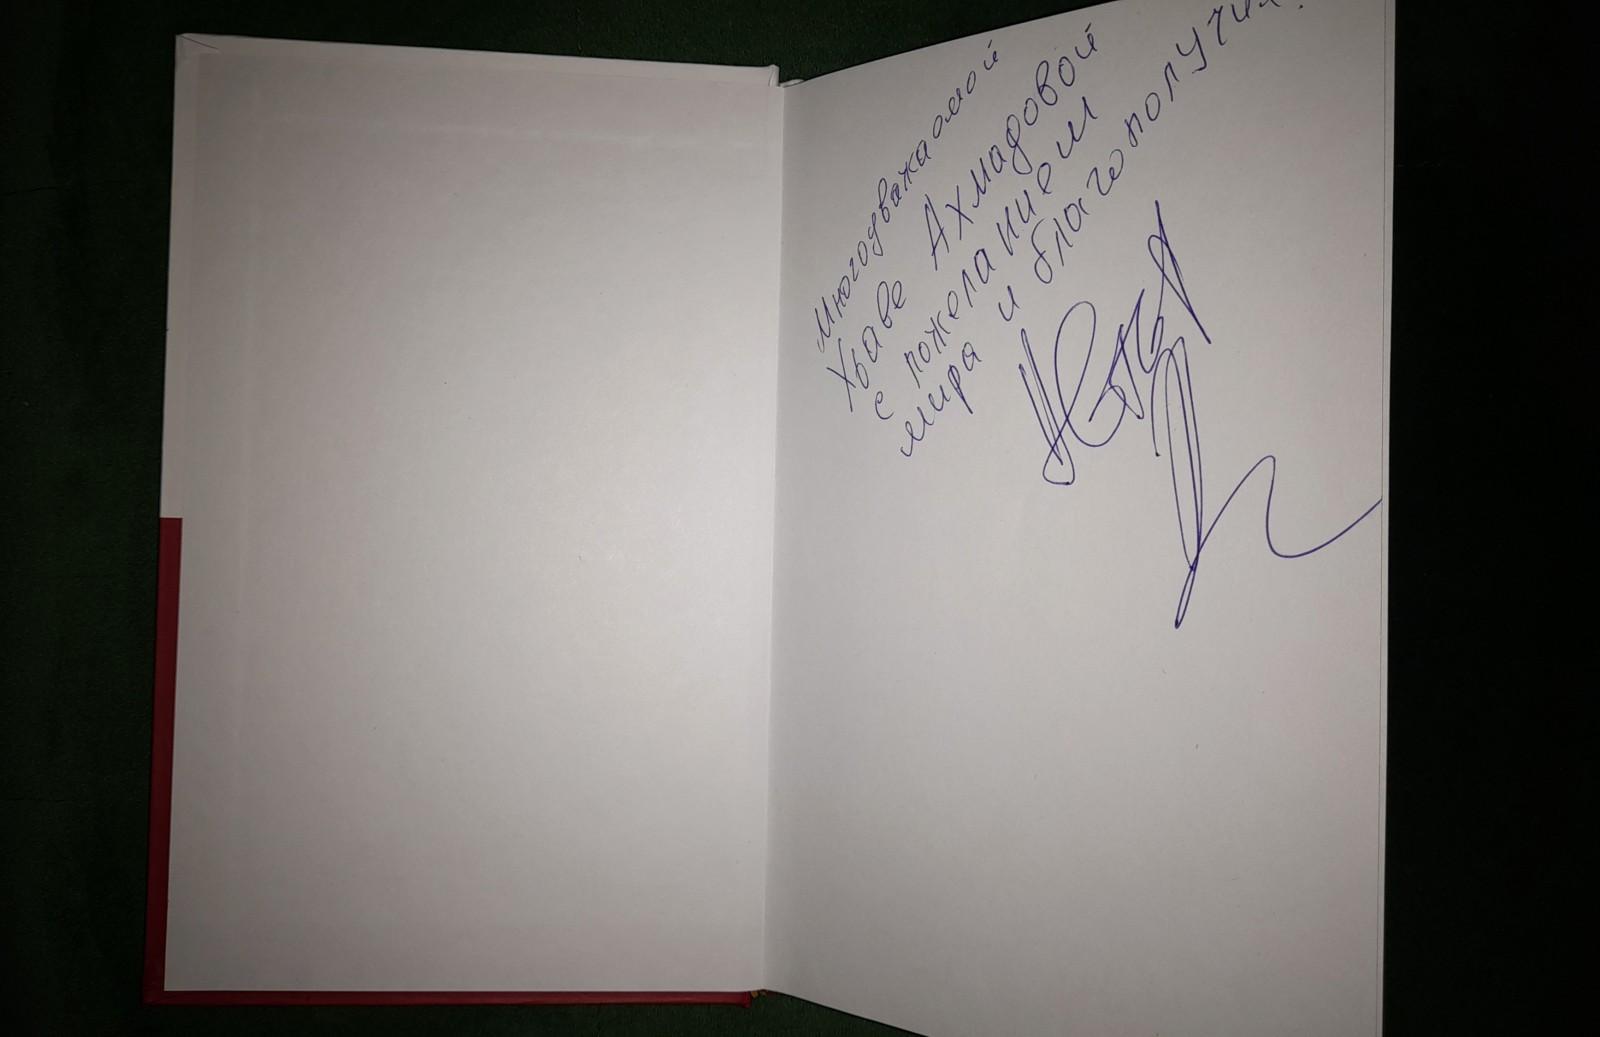 Многоуважаемой
Хьаве Ахмадовой
с пожеланием
мира и благополучия.